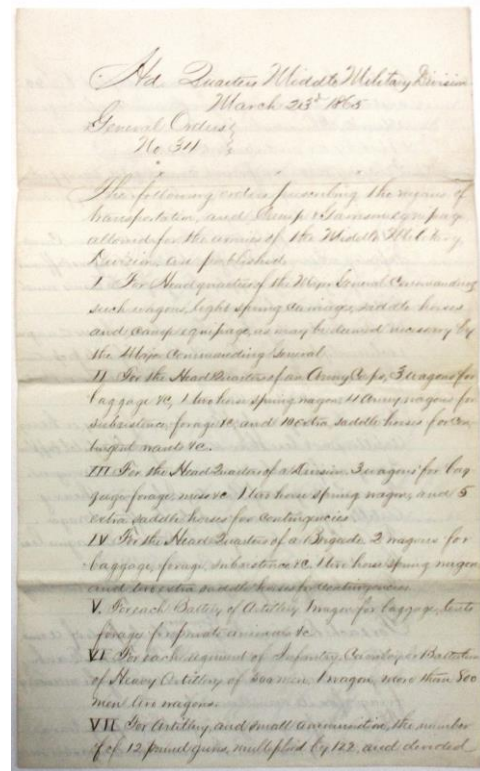 Hd. Quarters Middle Military Division
March 23d 1865
General Orders
No 34
The following orders prescribing the means of
transportation, and Camp & Garrison equipage
allowed for the armies of the Middle Military
Division, are published.
I For Head quarters of the Major General Commanding
such wagons, light spring carriages, saddle horses
and camp equipage, as may be deemed necessary by
the Major Commanding General
II For the Head Quarters of an Army Corps, 3 wagons for
baggage &c, 1 two horse spring wagon, 4 Army wagons for
subsistence, forage &c, and 10 extra saddle horses for con
tingent wants &c.
III For the Head Quarters of a Division 3 wagons for bag
gage forage, mess &c 1 two horse spring wagon, and 5
extra saddle horses for contingencies
IV For the Head Quarters of a Brigade 2 wagons for
baggage, forage, subsistence &c. 1 two horse spring wagon
and two extra saddle horses for contingencies
V. For each Battery of Artillery 1 wagon for baggage, tents
forage &c
VI For each regiment of Infantry Cavalry or Battalion
of Heavy Artillery of men, 1 wagon, more than 800
men two wagons.
VII For artillery, and small ammunition, the number
of 12 pound guns, multiplied by 122, and divided